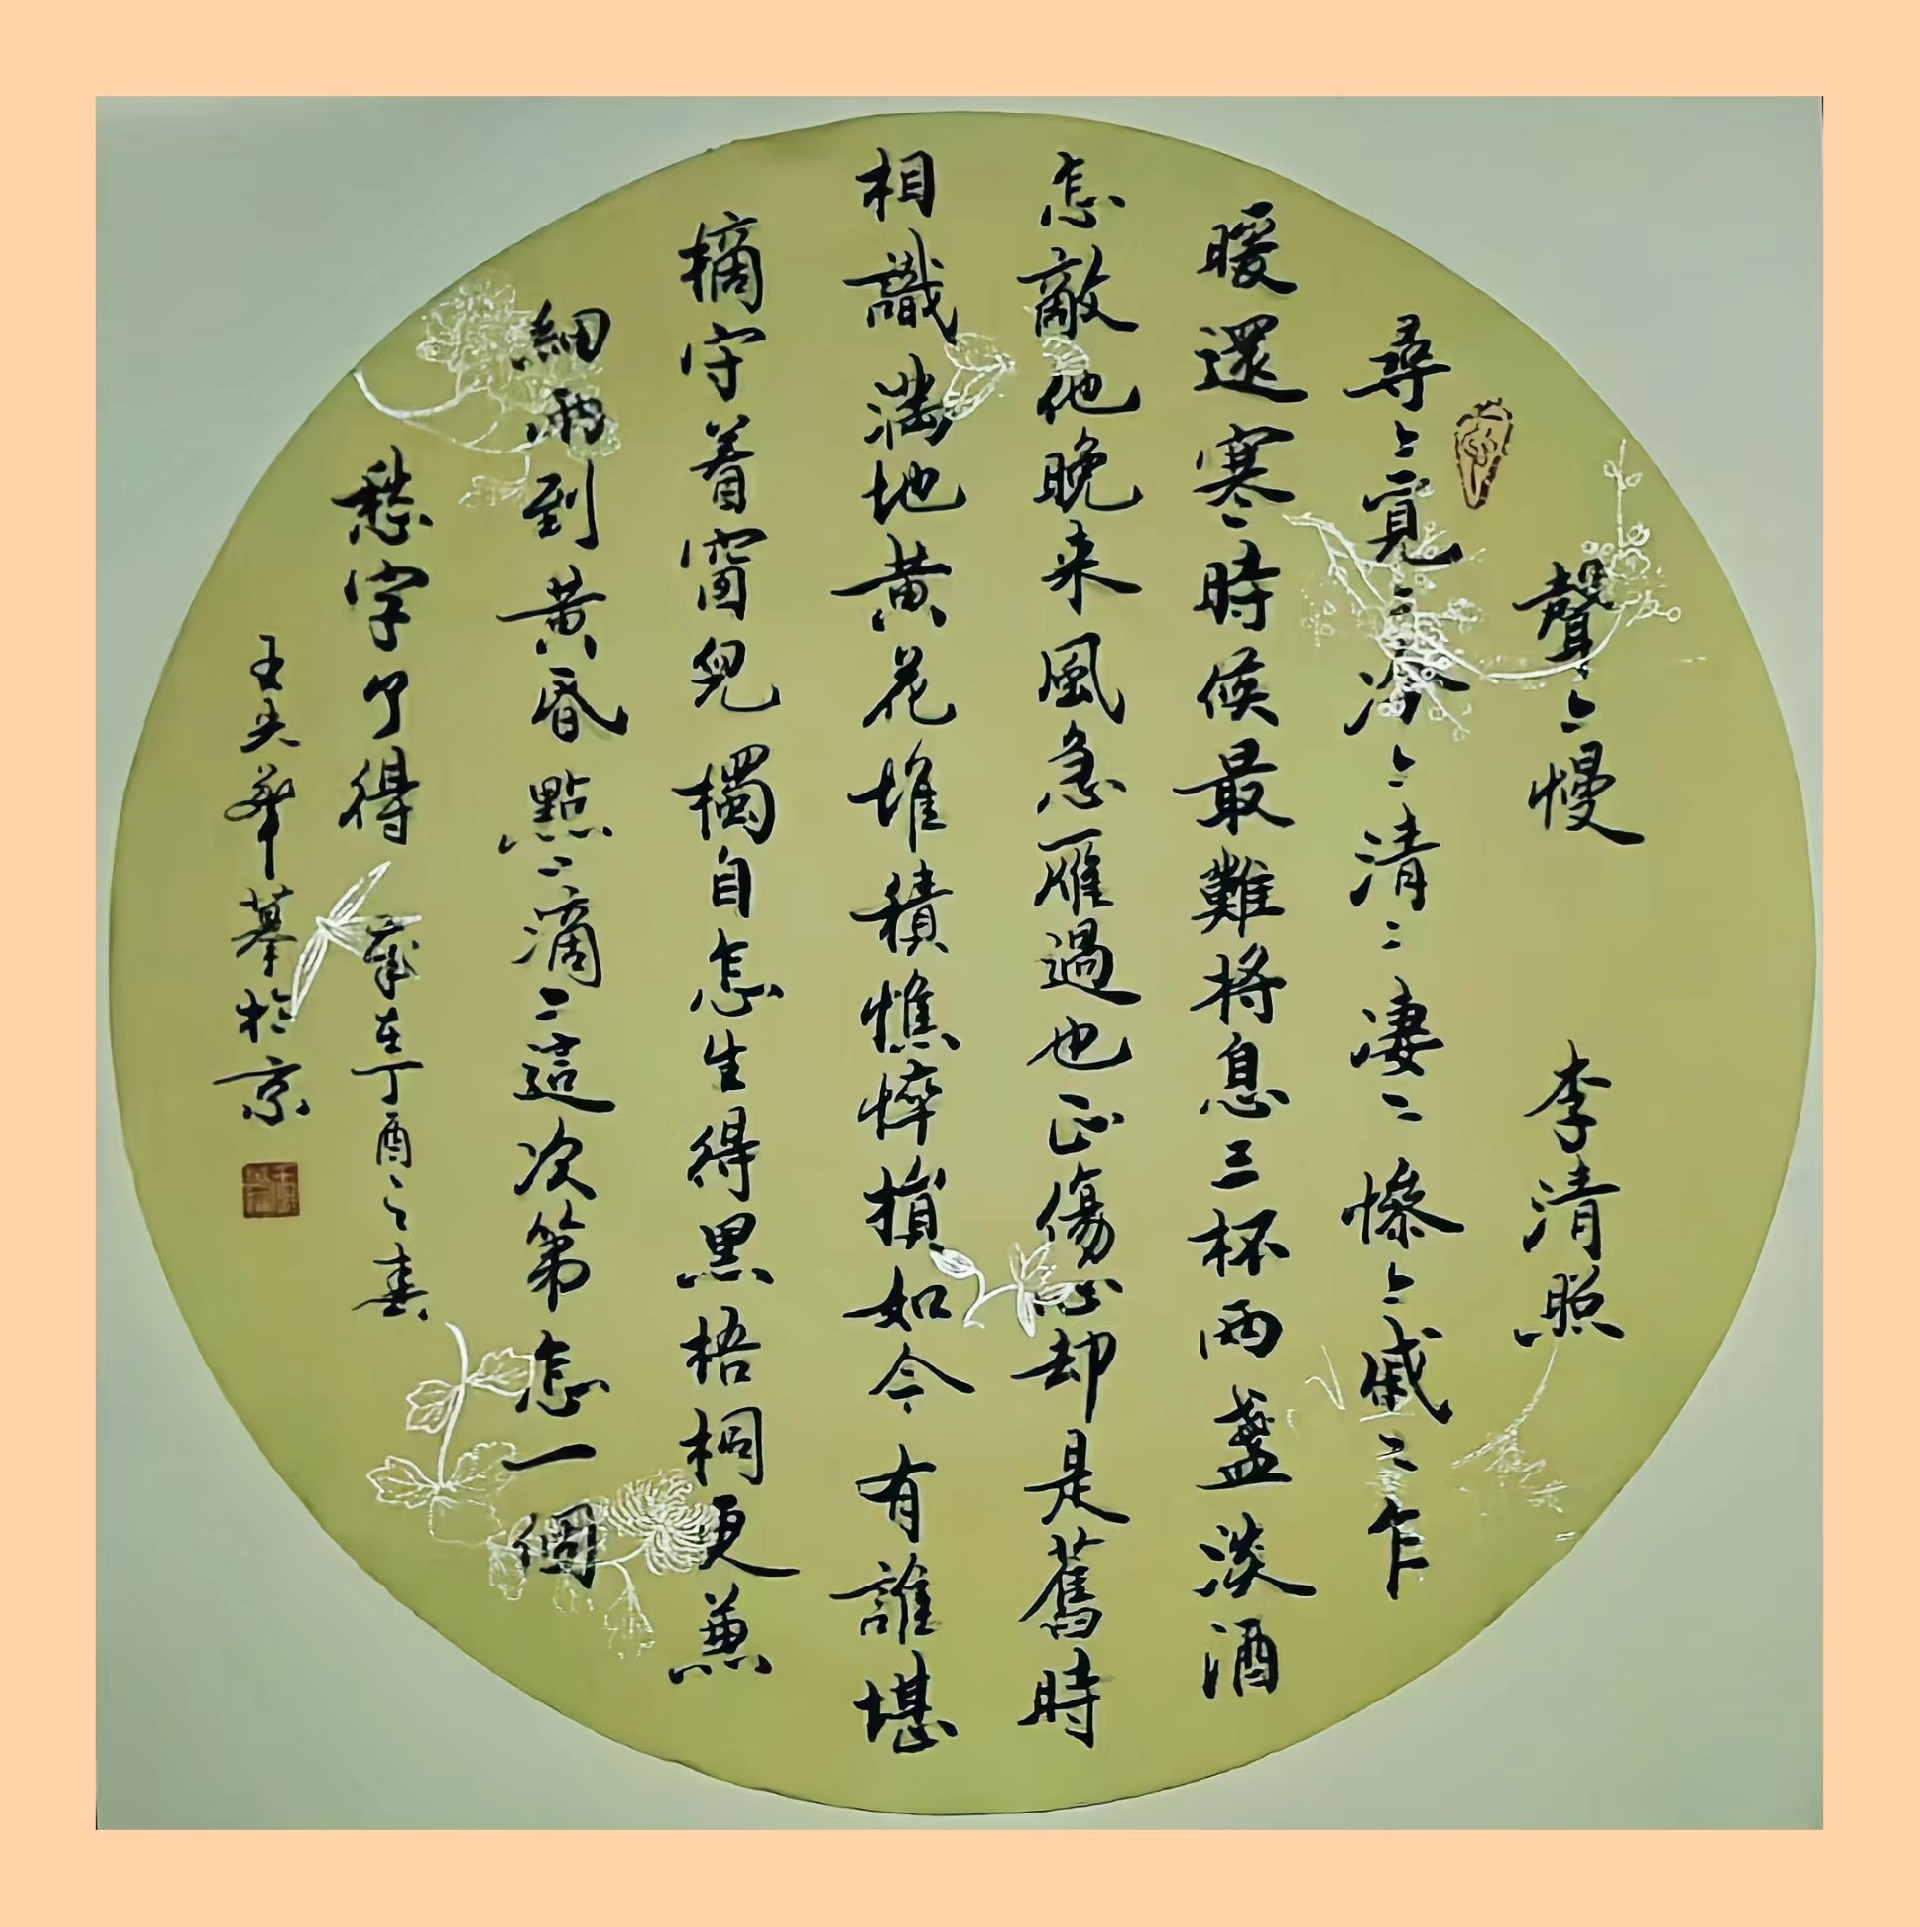 聲〻慢 李清照
尋〻覓〻冷〻清〻凄〻慘〻戚〻乍
暖還寒時候最難將息三杯兩盞淡酒
怎敵他晚来風急雁過也正傷心却是舊時
相識滿地黄花堆積憔悴損如今有誰堪
摘守着窗兒獨自怎生得黑梧桐更兼
細雨到黄昏點〻滴〻這次第怎一個
愁字了得 歲在丁酉之春
王 華摹於京